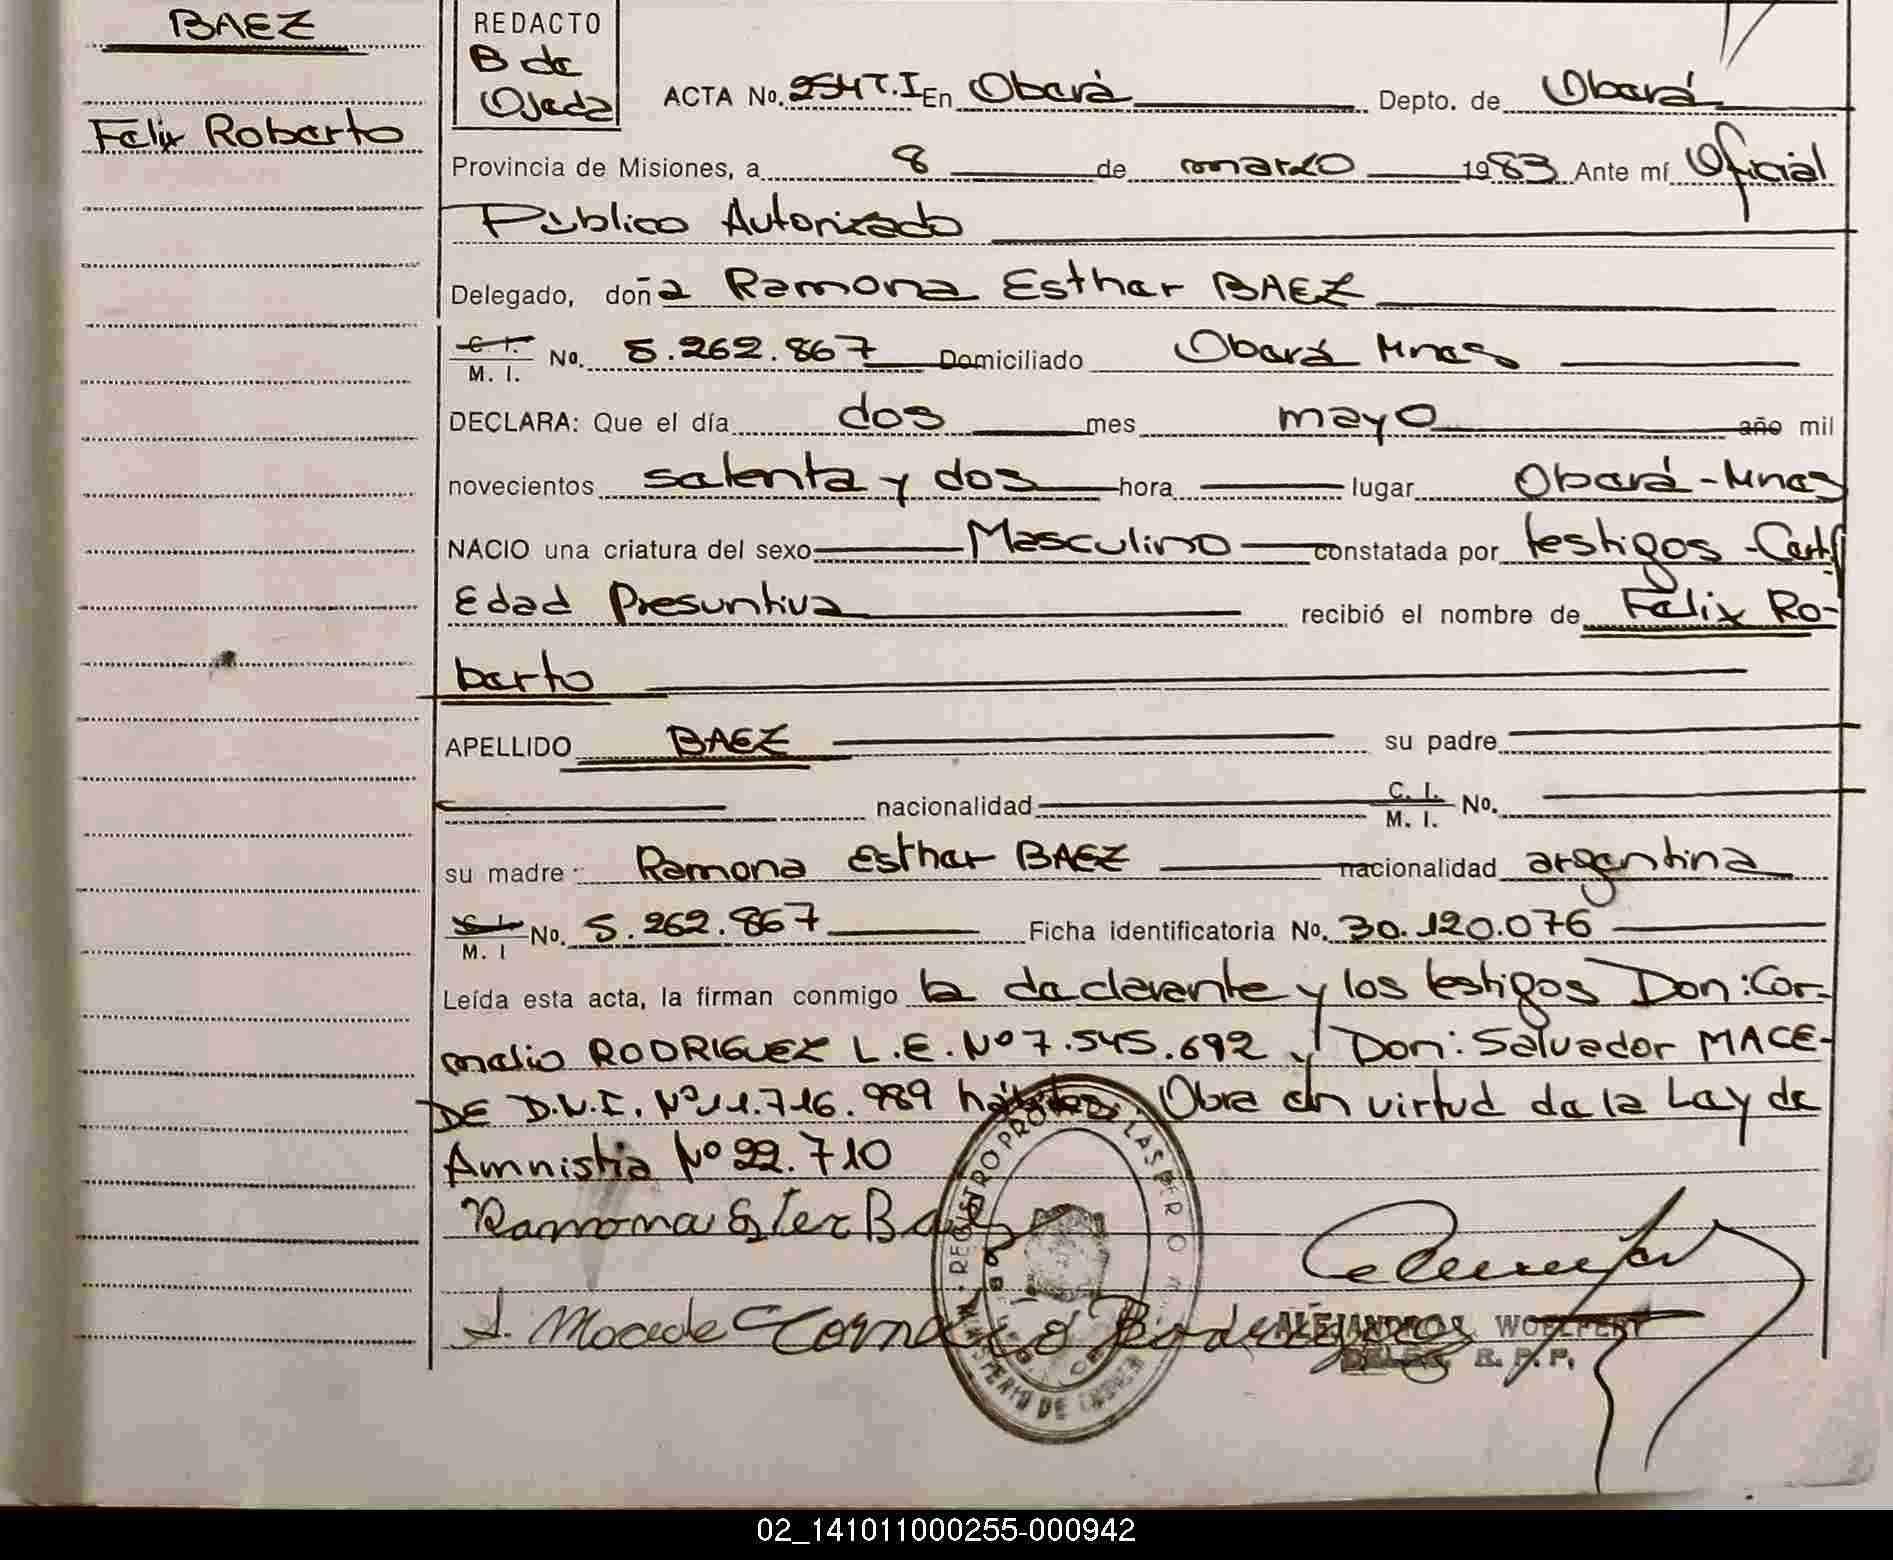 BAEZ
Felix Roberto
REDACTO
B de
Ojeda
ACTA No. 254 T.I En Oberá Depto. de Oberá
Provincia de Misiones, a 8 de marzo 1983 Ante mí Oficial
Público Autorizado
Delegado, doña Ramona Esther BAEZ
C. I.
M. I. No. 5.262.867 Domiciliado Oberá Mnes
DECLARA: Que el día dos mes mayo año mil
novecientos setenta y dos hora lugar Oberá - Mnes
NACIO una criatura del sexo Masculino constatada por testigos - Certf
Edad Presuntiva recibió el nombre de Felix Ro-
berto
APELLIDO BAEZ su padre
nacionalidad C. I.
M. I. No.
su madre: Ramona Esther BAEZ nacionalidad argentina
M. I No. 5.262.867 Ficha identificatoria No. 30.120.076
Leída esta acta, la firman conmigo la declarante y los testigos Don: Cor-
nelio RODRIGUEZ L.E. Nº 7.545.692 y Don: Salvador MACE-
DE D.N.I. Nº 11.716.989 hábiles. Obra en virtud de la Ley de
Amnistia Nº 22.710
Ramona Ester Baez
S. Macede Cornelio Rodriguez
REGISTRO PROV. DE LAS PERSO
MINISTERIO DE
WOELPERT
R. P. P.
02_141011000255-000942